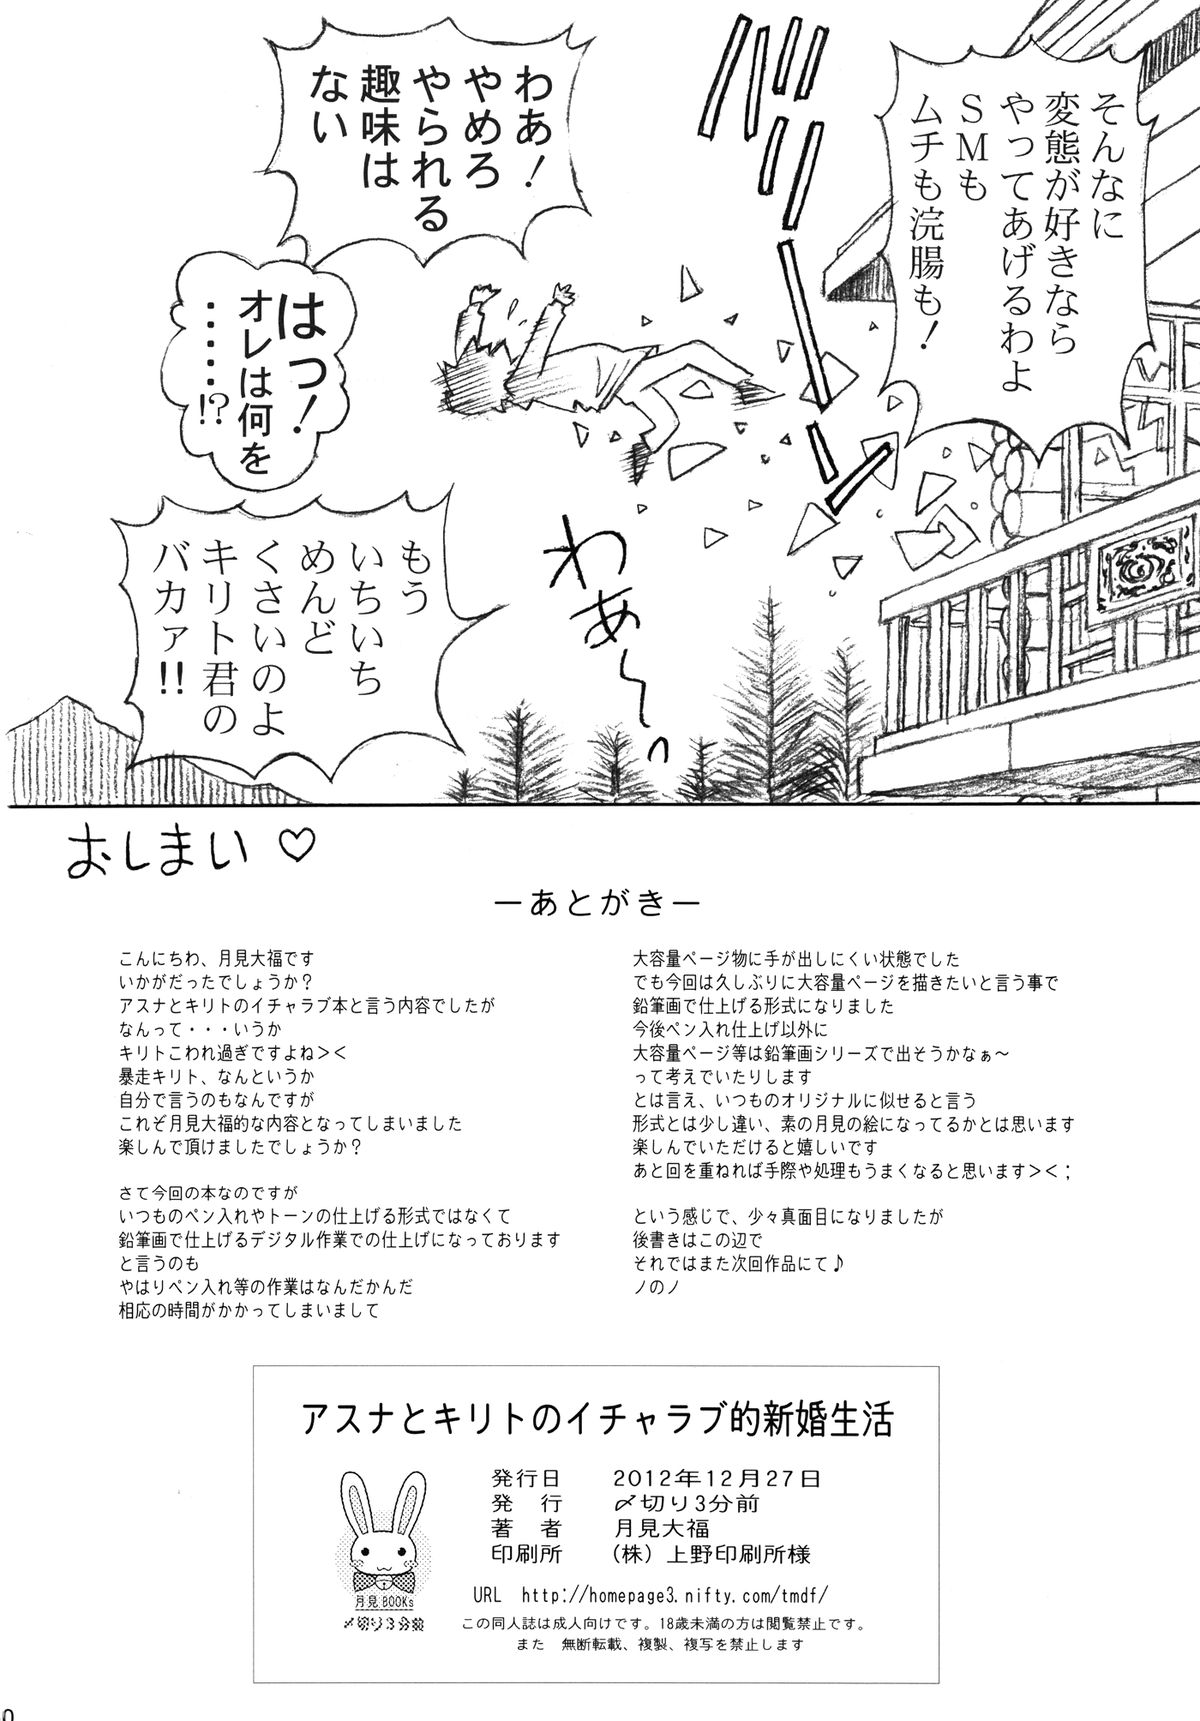 そんなに
変態が好きなら
やってあげるわよ
ＳＭも
ムチも浣腸も！
わあ！
やめろ
やられる
趣味は
ない
はっ！
オレは何を
・・・・・!?
わあ〜っ
もう
いちいち
めんど
くさいのよ
キリト君の
バカァ!!
おしまい♡
ーあとがきー
こんにちわ、月見大福です
いかがだったでしょうか？
アスナとキリトのイチャラブ本と言う内容でしたが
なんって・・・いうか
キリトこわれ過ぎですよね＞＜
暴走キリト、なんというか
自分で言うのもなんですが
これぞ月見大福的な内容となってしまいました
楽しんで頂けましたでしょうか？
さて今回の本なのですが
いつものペン入れやトーンの仕上げる形式ではなくて
鉛筆画で仕上げるデジタル作業での仕上げになっております
と言うのも
やはりペン入れ等の作業はなんだかんだ
相応の時間がかかってしまいまして
大容量ページ物に手が出しにくい状態でした
でも今回は久しぶりに大容量ページを描きたいと言う事で
鉛筆画で仕上げる形式になりました
今後ペン入れ仕上げ以外に
大容量ページ等は鉛筆画シリーズで出そうかなぁ〜
って考えでいたりします
とは言え、いつものオリジナルに似せると言う
形式とは少し違い、素の月見の絵になってるかとは思います
楽しんでいただけると嬉しいです
あと回を重ねれば手際や処理もうまくなると思います＞＜；
という感じで、少々真面目になりましたが
後書きはこの辺で
それではまた次回作品にて♪
ノのノ
アスナとキリトのイチャラブ的新婚生活
発行日　2012年12月27日
発　行　〆切り3分前
著　者　月見大福
印刷所　（株）上野印刷所様
月見BOOKs
〆切り3分前
URL　http://homepage3.nifty.com/tmdf/
この同人誌は成人向けです。18歳未満の方は閲覧禁止です。
また　無断転載、複製、複写を禁止します